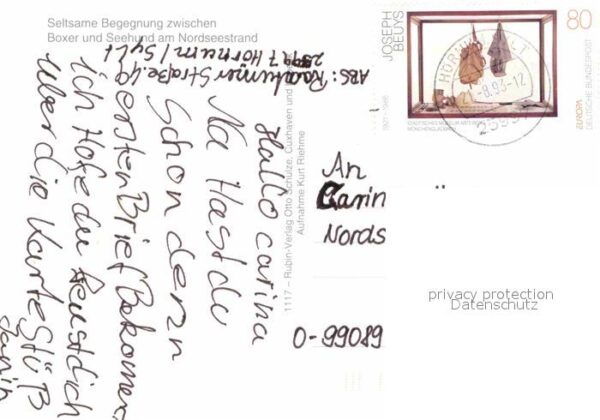 Seltsame Begegnung zwischen
Boxer und Seehund am Nordseestrand
ABS: Raantumer Straße 40
25997 Hörnum/Sylt
Hallo carina
Na Hast du
Schon denn
ersten Brief Bekomen
ich Hofe du freust dich
über die Karte Grüß
1117 – Rubin-Verlag Otto Schülze, Cuxhaven und
Aufnahme Kurt Riehme
JOSEPH
BEUYS
80
DEUTSCHE BUNDESPOST
EUROPA
1921-1986
MÖNCHENGLADBACH
-8.93-12
An
Carin
Nords
O-99089
privacy protection
Datenschutz